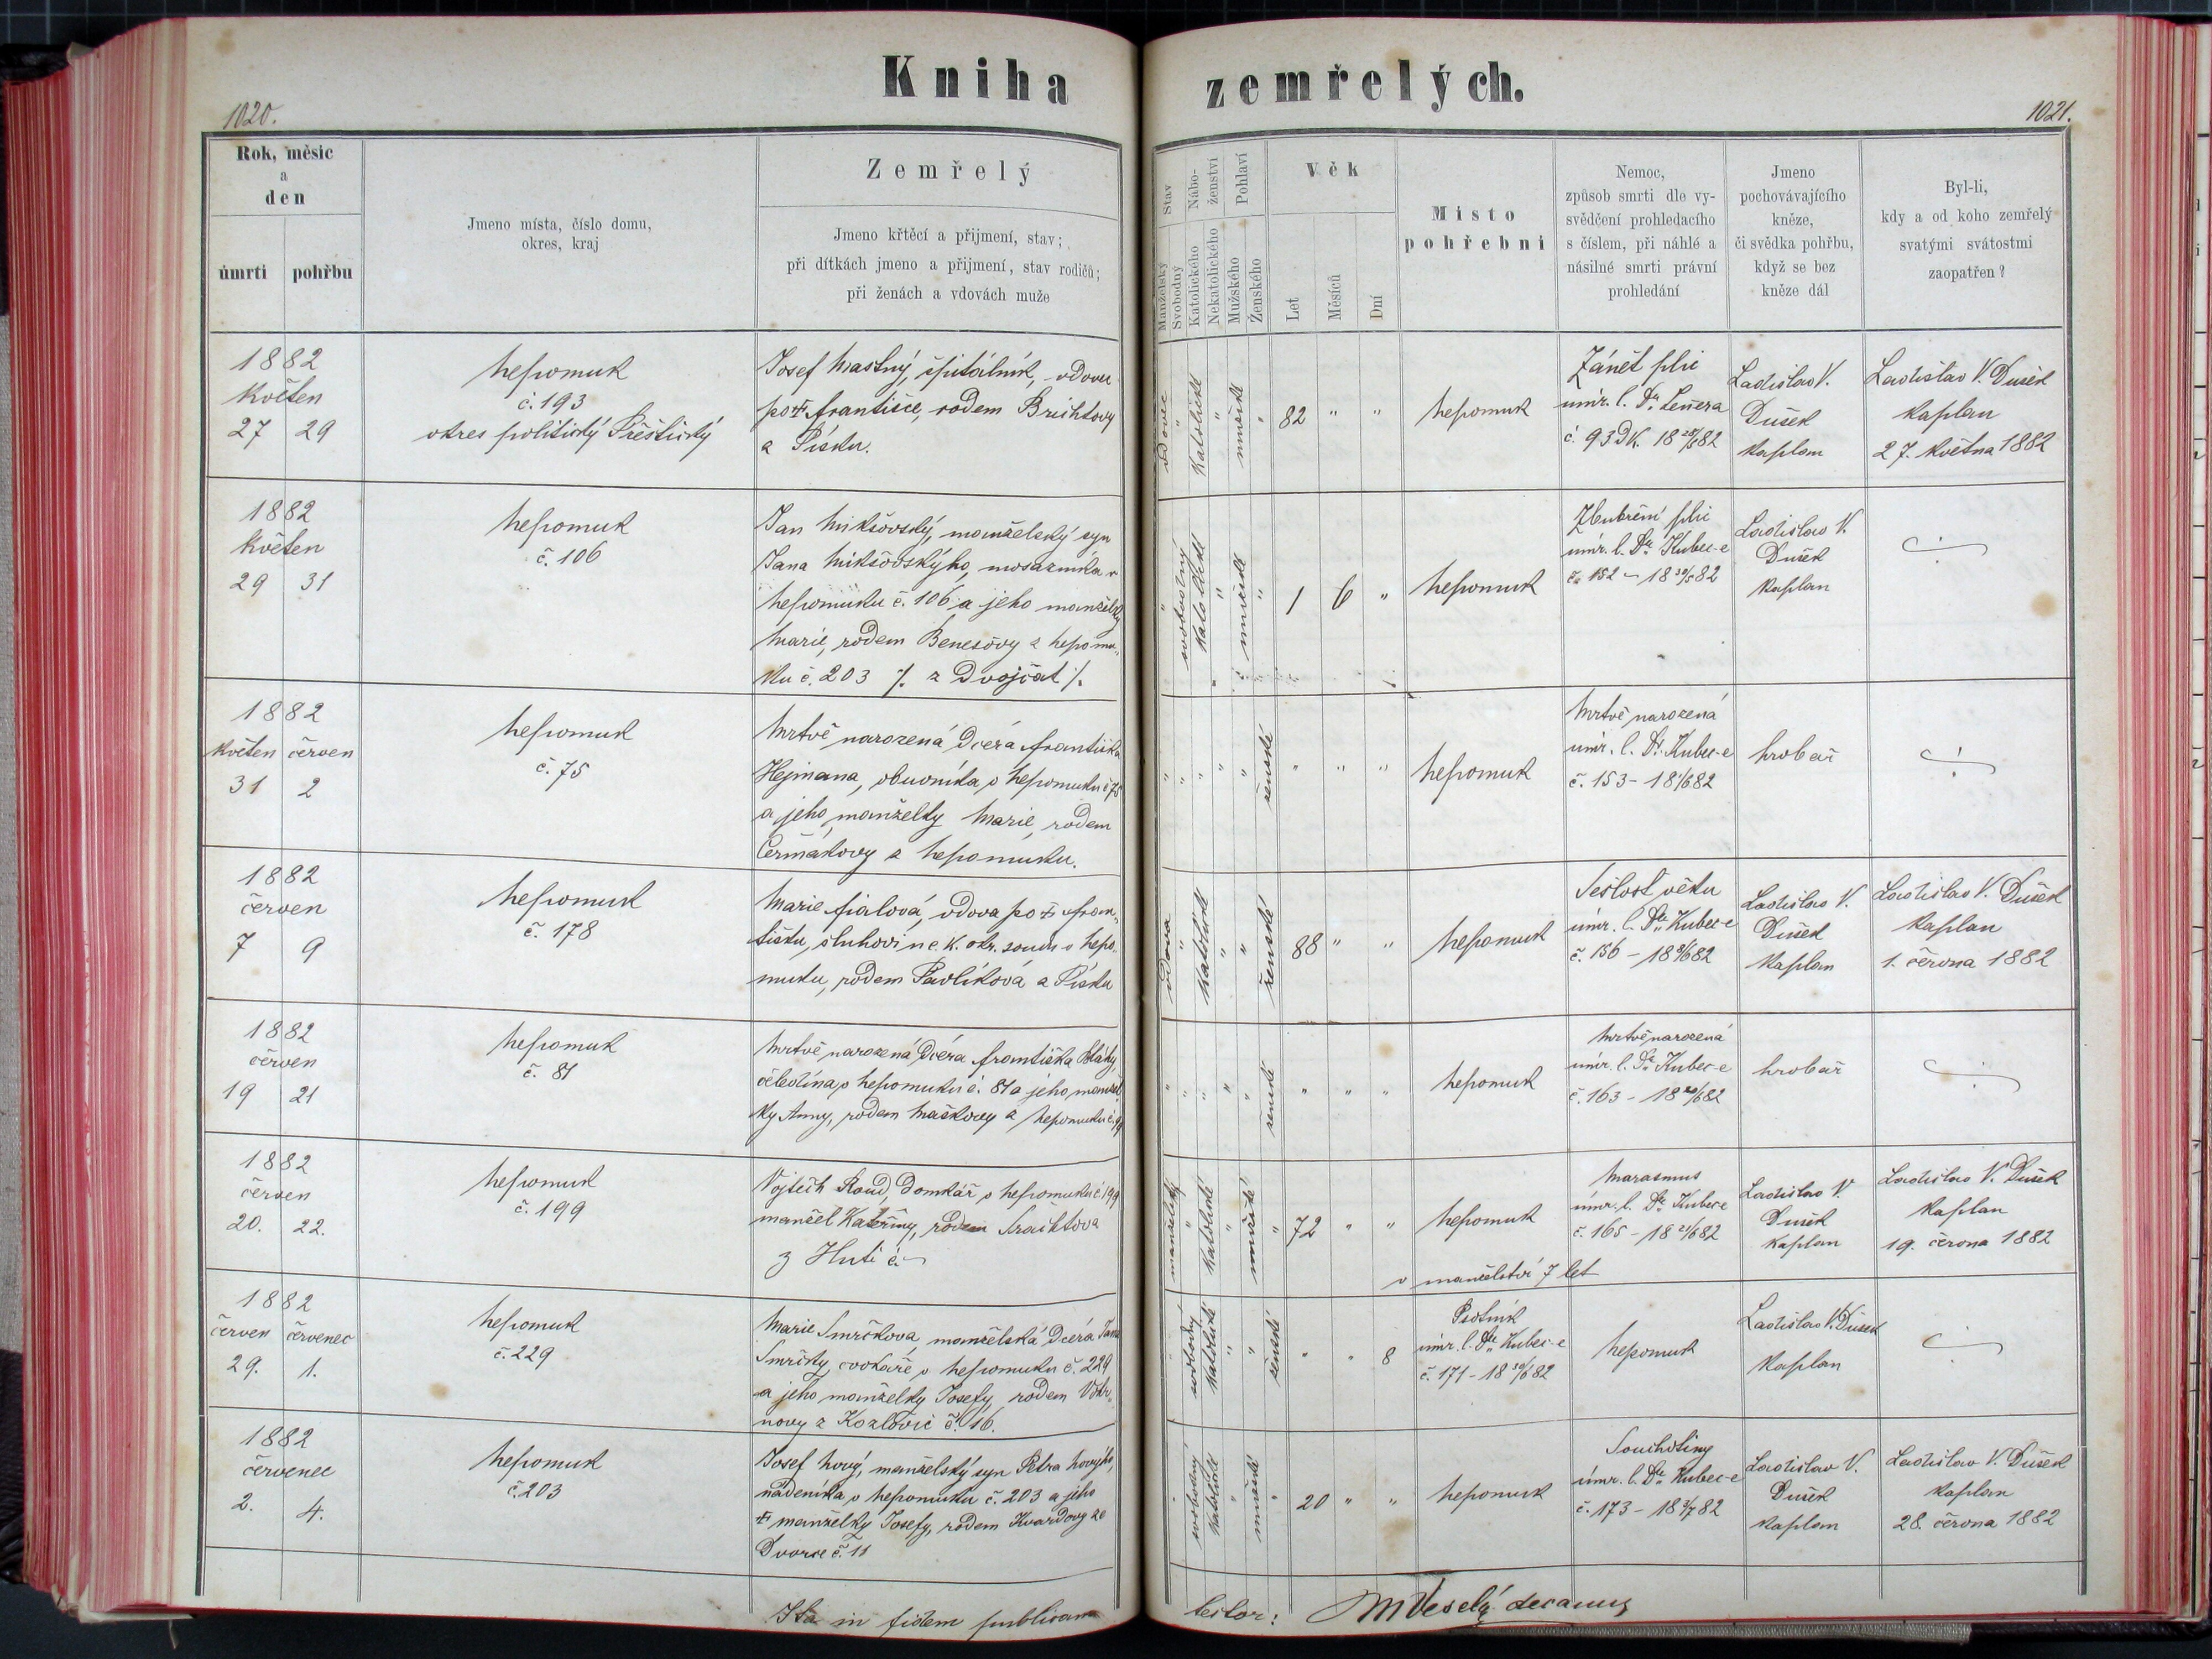 Kniha zemřelých.
1020.
1021.
Rok, měsíc
a
den
úmrtí
pohřbu
Jmeno místa, číslo domu,
okres, kraj
Zemřelý
Jmeno křtěcí a přijmení, stav;
při dítkách jmeno a přijmení, stav rodičů;
při ženách a vdovách muže
Stav
Manželský
Svobodný
Nábo-
ženství
Katolického
Nekatolického
Pohlaví
Mužského
Ženského
Věk
Let
Měsíců
Dní
Místo
pohřební
Nemoc,
způsob smrti dle vy-
svědčení prohledacího
s číslem, při náhlé a
násilné smrti právní
prohledání
Jmeno
pochovávajícího
kněze,
či svědka pohřbu,
když se bez
kněze dál
Byl-li,
kdy a od koho zemřelý
svatými svátostmi
zaopatřen?
1882
květen
27 29
Nepomuk
č. 193
okres politický Přeštický
Josef Mastný, špitálník, vdovec
po Františce, rodem Brichtovy
z Písku.
vdovec
katolické
mužské
82 " "
Nepomuk
Zánět plic
úmr. l. Dr. Lenera
č. 93
Ladislav V.
Dušek
kaplan
Ladislav V. Dušek
kaplan
27. května 1882
1882
květen
29 31
Nepomuk
č. 106
Jan Mikšovský, manželský syn
Jana Mikšovskýho, mosazníka v
Nepomuku č. 106 a jeho manželky
Marie, rodem Benešovy z Nepomu„
ku č. 203 /. z dvojčat /.
svobodný
katolické
mužské
1 6 "
Nepomuk
Zbubření plic
úmr. l. Dr. Kubec-e
č. 152 - 18 30/5 82
Ladislav V.
Dušek
kaplan
1882
květen červen
31 2
Nepomuk
č. 75
Mrtvě narozená dcera Františka
Hejmana, obuvníka v Nepomuku č 75
a jeho manželky Marie, rodem
Čermákovy z Nepomuku.
ženské
" " "
Nepomuk
Mrtvě narozená
úmr. l. Dr. Kubec-e
č. 153 - 18 1/6 82
hrobař
1882
červen
7 9
Nepomuk
č. 178
Marie Fialová, vdova po Fran„
tišku, sluhovi u c. k. okr. soudu v Nepo„
muku, rodem Pavlíková z Písku
vdova
katolické
ženské
88 " "
Nepomuk
Sešlost věku
úmr. l. Dr. Kubec-e
č. 156 - 18 8/6 82
Ladislav V.
Dušek
kaplan
Ladislav V. Dušek
kaplan
1. června 1882
1882
červen
19 21
Nepomuk
č. 81
Mrtvě narozená dcera Františka
čeledína v Nepomuku č. 81 a jeho manžel„
ky Anny, rodem Maškovy z Nepomuku
ženské
" " "
Nepomuk
Mrtvě narozená
úmr. l. Dr. Kubec-e
č. 163 - 18 20/6 82
hrobař
1882
červen
20. 22.
Nepomuk
č. 199
Vojtěch Roud, domkář v Nepomuku č 199
manžel Kateřiny, rodem
z Hutí č.
manželský
katolické
mužské
72 " "
Nepomuk
Marasmus
úmr. l. Dr. Kubec-e
č. 165 - 18 21/6 82
v manželství 7 let
Ladislav V.
Dušek
kaplan
Ladislav V. Dušek
kaplan
19. června 1882
1882
červen červenec
29. 1.
Nepomuk
č. 229
Marie Smrčkova, manželská dcera Jana
Smrčky, cvokaře v Nepomuku č. 229
a jeho manželky Josefy, rodem
novy z Kozlovic č. 16.
svobodný
katolické
ženské
" " 8
Psotník
úmr. l. Dr. Kubec-e
č. 171 - 18 30/6 82
Nepomuk
Ladislav V. Dušek
kaplan
1882
červenec
2. 4.
Nepomuk
č. 203
Josef Nový, manželský syn Petra Novýho,
nádeníka v Nepomuku č. 203 a jeho
manželky Josefy, rodem Kvardovy ze
Dvorce č. 11
svobodný
katolické
mužské
20 " "
Nepomuk
Souchotiny
úmr. l. Dr. Kubec-e
č. 173 - 18 3/7 82
Ladislav V.
Dušek
kaplan
Ladislav V. Dušek
kaplan
28. června 1882
Ita in fidem publicam
testor: M Veselý decanus